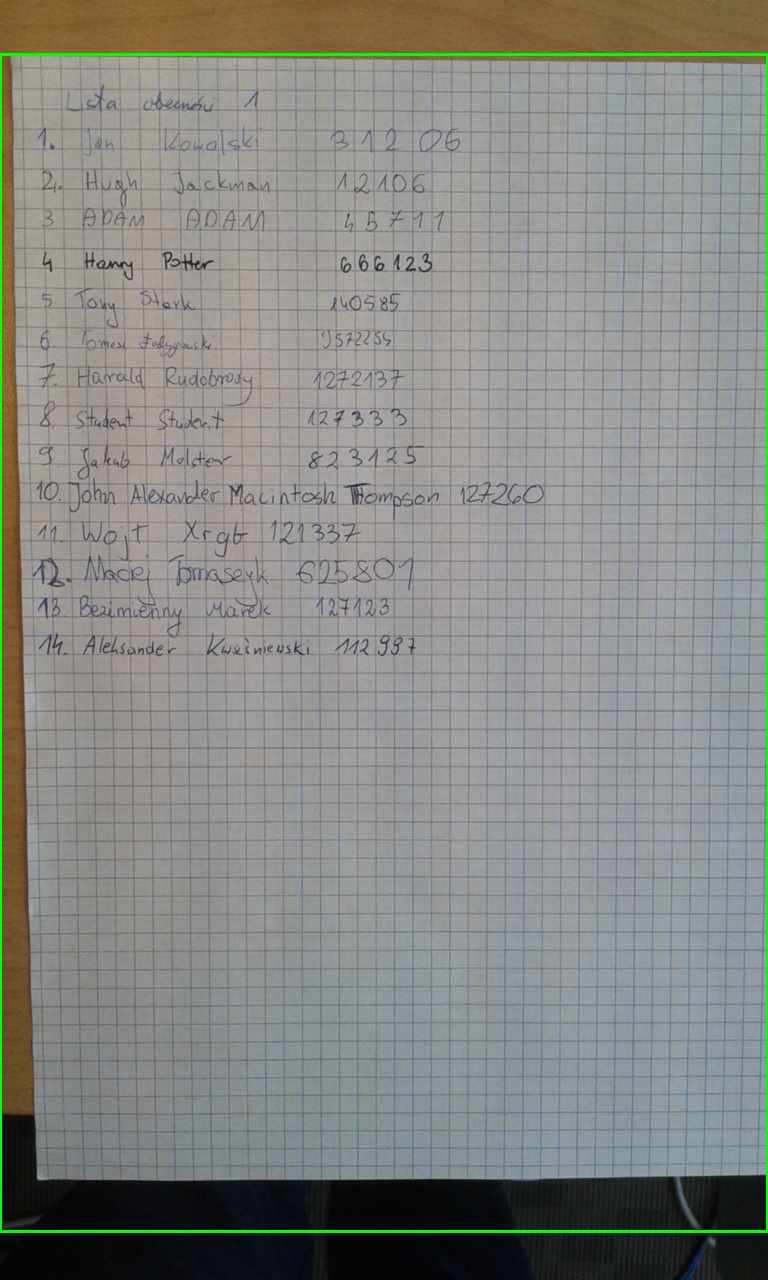 Lista obecności 1
1. Jan Kowalski 31206
2. Hugh Jackman 12106
3 ADAM ADAM 45711
4 Harry Potter 666123
5 Tony Stark 140585
6 Tomasz 9572254
7. Harald Rudobrody 1272137
8. Student Student 127333
9. Jakub Molster 823125
10. John Alexander Macintosh Thompson 127260
11. Wojt Xrgb 121337
12. Maciej Tomaseyk 625801
13 Bezimienny Marek 127123
14. Aleksander Kwaśniewski 112997